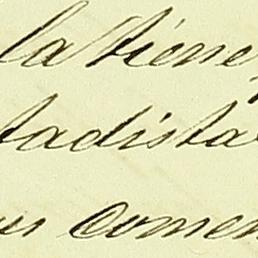 la tiene
tadista
us comen